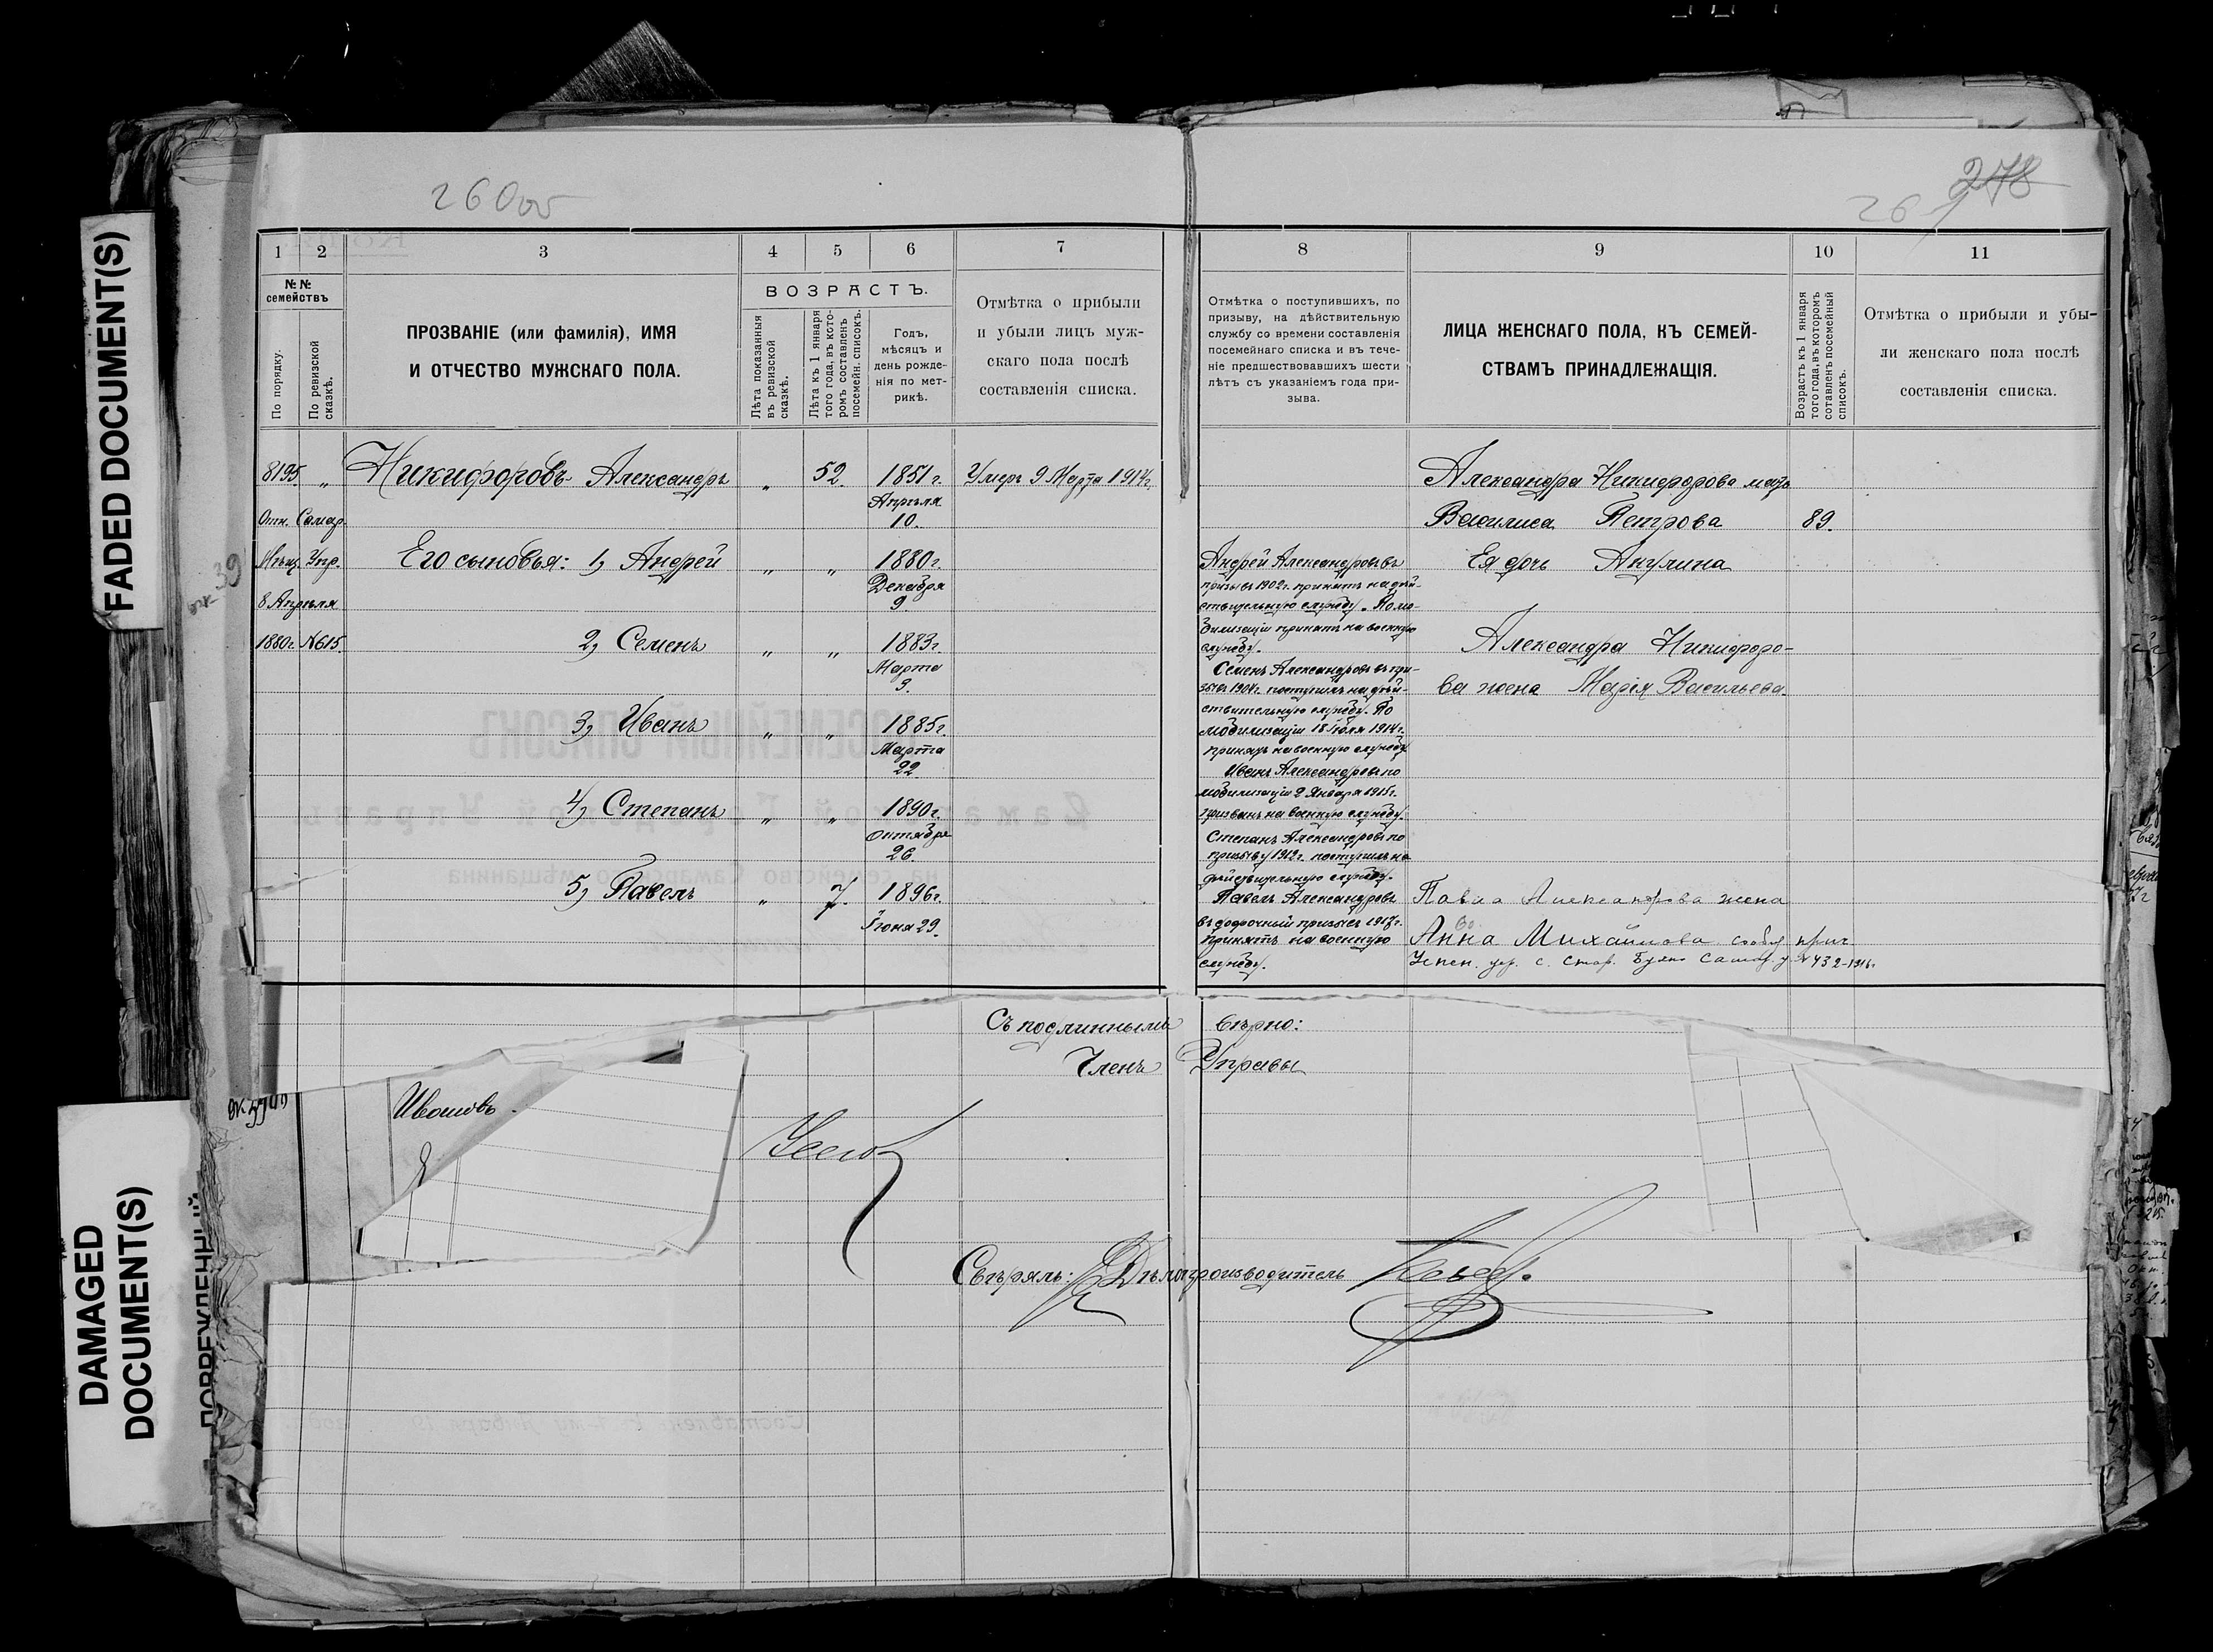 260об
278
261
1 2 3 4 5 6 7 8 9 10 11
№№ семействъ
По порядку.
По ревизской сказкѣ.
ПРОЗВАНІЕ (или фамилія), ИМЯ
И ОТЧЕСТВО МУЖСКАГО ПОЛА.
ВОЗРАСТЪ.
Лѣта показанныя
въ ревизской
сказкѣ.
Лѣта къ 1 января
того года, въ кото-
ромъ составленъ
посемейн. списокъ.
Годъ,
мѣсяцъ и
день рожде-
нія по мет-
рикѣ.
Отмѣтка о прибыли
и убыли лицъ муж-
скаго пола послѣ
составленія списка.
Отмѣтка о поступившихъ, по
призыву, на дѣйствительную
службу со времени составленія
посемейнаго списка и въ тече-
ніе предшествовавшихъ шести
лѣтъ съ указаніемъ года при-
зыва.
ЛИЦА ЖЕНСКАГО ПОЛА, КЪ СЕМЕЙ-
СТВАМЪ ПРИНАДЛЕЖАЩІЯ.
Возрастъ къ 1 января
того года, въ которомъ
сотавленъ посемейный
списокъ.
Отмѣтка о прибыли и убы-
ли женскаго пола послѣ
составленія списка.
8195. „ Никифоровъ Александръ „ 52. 1851 г. Умеръ 9 Марта 1914г.
Апрѣля
10.
Отн. Самар.
Мѣщ. Упр.
8 Апрѣля
1880г. №615.
Его сыновья: 1, Андрей „ „ 1880г.
Декабря
9.
2, Семенъ „ „ 1883г.
Марта
9.
3, Иванъ „ „ 1885г.
Марта
22.
4, Степанъ „ „ 1890г.
Октября
26.
5, Павелъ „ 7. 1896г.
Іюня 29.
Андрей Александровъ въ
призывъ 1902г. принятъ на дѣй-
ствительную службу. По мо-
билизаціи принятъ на военную
службу.
Семенъ Александровъ въ при-
зывъ 1904г. поступилъ на дѣй-
ствительную службу. По
мобилизаціи 18 Іюля 1914г.
принятъ на военную службу
Иванъ Александровъ по
мобилизаціи 2 Января 1915г.
призванъ на военную службу.
Степанъ Александровъ по
призыву 1912г. поступилъ на
дѣйствительную службу.
Павелъ Александровъ
въ досрочный призывъ 1917г.
принятъ на военную
службу.
Александра Никифорова мать
Василиса Петрова 89.
Ея дочь Акулина
Александра Никифоро-
ва жена Марія Васильева.
Павла Александрова жена
Анна Михайлова сообщ прич
Успен. цер. с. Стар. Буян Самар. у. №432-1916г
Съ подлиннымъ вѣрно:
Членъ Управы
Ивановъ
Свѣрялъ: Дѣлопроизводитель
39
FADED DOCUMENT(S)
DAMAGED
DOCUMENT(S)